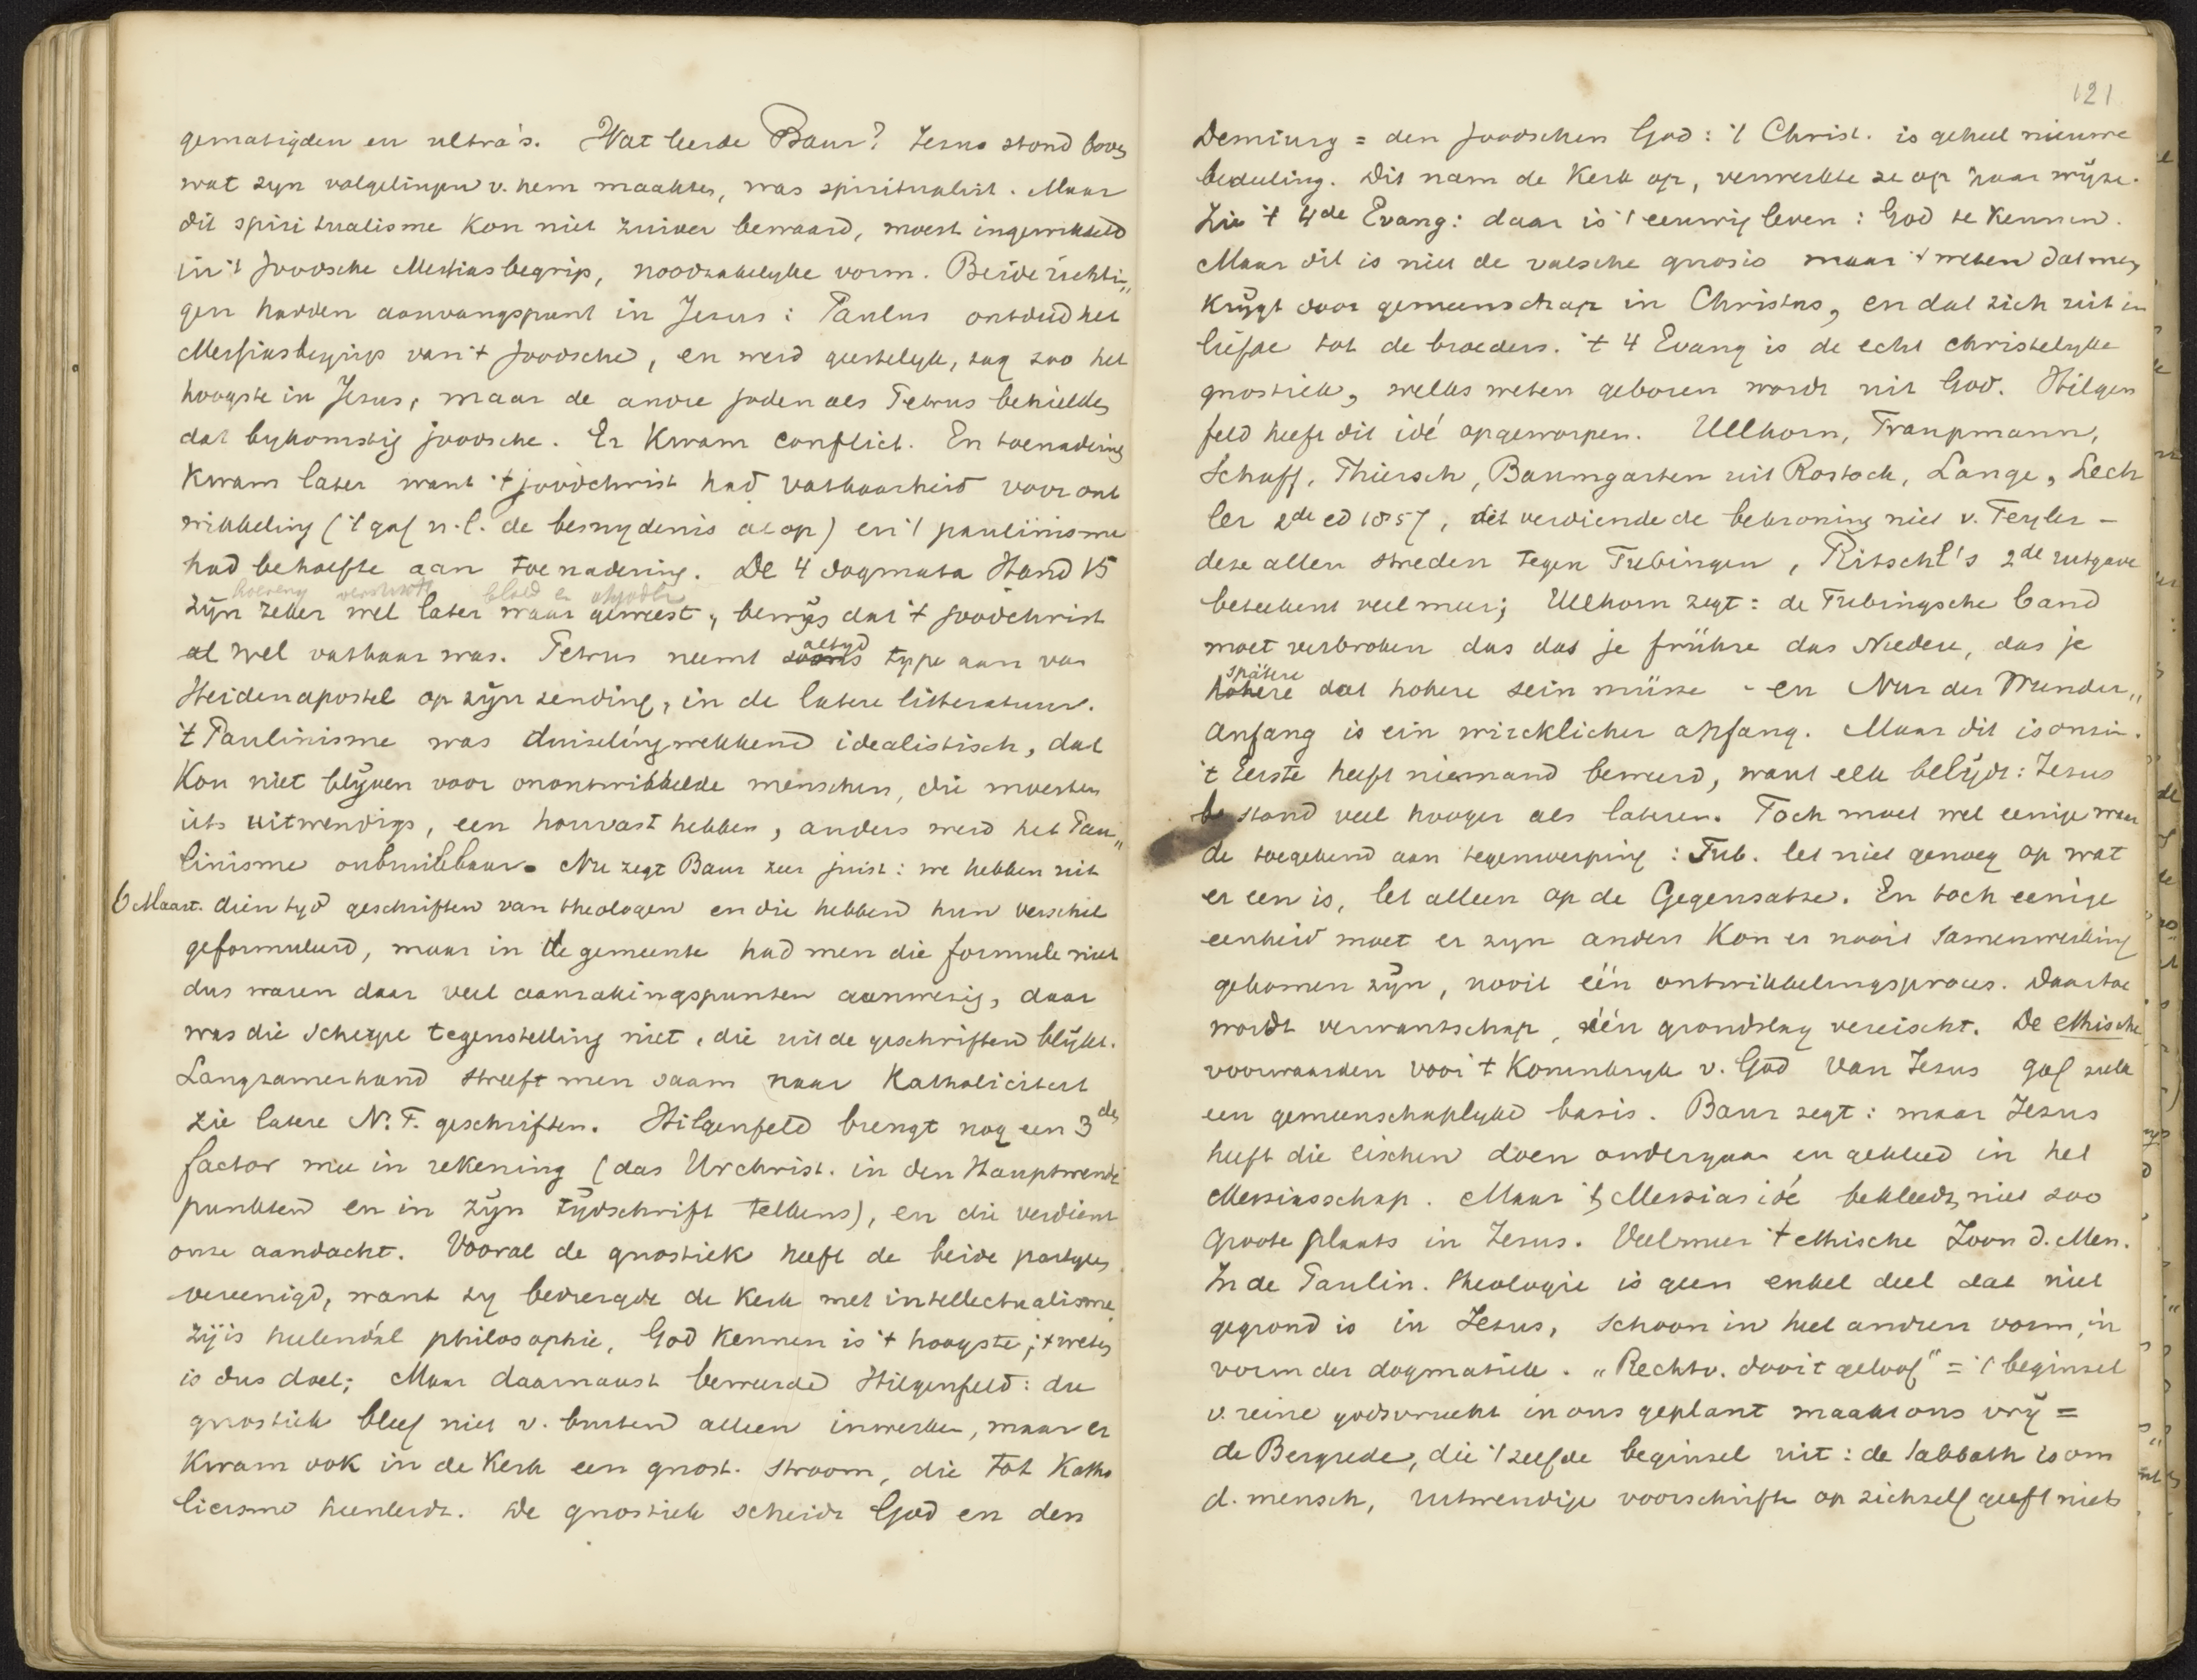 gematigden en ultra's. Wat leerde Baur? Jesus stond boven
wat zyn volgelingen v. hem maakten, was spiritualist. Maar
dit spiritualisme kon niet zuiver bewaard, moest ingewikkeld
in 't Joodsche Messiasbegrip, noodzakelyke vorm. Beide richtin„
gen hadden aanvangspunt in Jezus: Paulus ontdeed het
Messiasbegrip van 't Joodsche, en werd geestelyk, zag zoo het
hoogste in Jezus, maar de andre joden als Petrus behielden
dat bykomstig joodsche. Er kwam conflict. En toenadering
kwam later want 't joodchrist had vatbaarheid voor ont
wikkeling ('t gaf n.l. de besnydenis al op) en 't paulinisme
had behoefte aan toenadering. De 4 dogmata Hand 15
hoererij verstikte bloed en afgodb
zyn zeker wel later waar geweest, bewys dat 't joodchrist
al wel vatbaar was. Petrus neemt altyd type aan van
Heidenapostel op zyn zending, in de latere litteratuur.
't Paulinisme was duizelingwekkend idealistisch, dat
kon niet blyven voor onontwikkelde menschen, die moesten
iets uitwendigs, een houvast hebben, anders werd het Pau„
linisme onbruikbaar. Nu zegt Baur zeer juist: we hebben uit
6 Maart. dien tyd geschriften van theologen en die hebben hun verschil
geformuleerd, maar in de gemeente had men die formule niet
dus waren daar veel aanrakingspunten aanwezig, daar
was die scherpe tegenstelling niet, die uit de geschriften blykt.
Langzamerhand streeft men saam naar Katholiciteit
zie latere N.T. geschriften. Hilgenfeld brengt nog een 3den
factor mee in rekening (das Urchrist. in den Hauptwende
punkten en in zyn tydschrift telkens), en die verdient
onze aandacht. Vooral de gnostiek heeft de beide partyen
vereenigd, want zy bedreigde de Kerk met intellectualisme
zy is heelendal philosophie, God kennen is 't hoogste; 't weten
is dus doel; Maar daarnaast beweerde Hilgenfeld: die
gnostiek bleef niet v. buiten alleen inwerken, maar er
kwam ook in de Kerk een gnost. stroom, die tot Katho
licisme heenleidt. De gnostiek scheidt God en den
121
Demiurg = den Joodschen God: 't Christ. is geheel nieuwe
bedeeling. Dit nam de Kerk op, verwerkte ze op haar wyze.
Zie 't 4de Evang: daar is 't eeuwig leven: God te kennen.
Maar dit is niet de valsche gnosis maar 't weten dat men
krygt door gemeenschap in Christus, en dat zich uit in
liefde tot de broeders. 't 4 Evang is de echt christelyke
gnostiek, welks weten geboren wordt uit God. Hilgen
feld heeft dit idé opgeworpen. Ullhorn, Traupmann,
Schaff, Thiersch, Baumgarten uit Rostock, Lange, Lech
ler 2de ed 1857, dit verdiende de bekroning niet v. Teyler –
deze allen streden tegen Tubingen, Ritschl's 2de uitgave
beteekent veel meer; Ullhorn zegt: de Tubingsche band
moet verbroken das das je frühre das Niedere, das je
spätere
dat hohere sein müsse - en Nur der Wunder„
anfang is ein wircklicher anfang. Maar dit is onzin.
't Eerste heeft niemand beweerd, want elk belydt: Jezus
stond veel hooger als lateren. Toch moet wel eenige waar
de toegekend aan tegenwerping: Tub. let niet genoeg op wat
er een is, let alleen op de Gegensatze. En toch eenige
eenheid moet er zyn anders kon er nooit samenwerking
gekomen zyn, nooit één ontwikkelingsproces. Daartoe
wordt verwantschap, één grondslag vereischt. De ethische
voorwaarden voor 't Koninkryk v. God van Jezus gaf zulk
een gemeenschaplyke basis. Baur zegt: maar Jezus
heeft die eischen doen ondergaan en gekleed in het
Messiasschap. Maar 't Messias idé bekleedt niet zoo
groote plaats in Jezus. Veelmeer 't ethische Zoon d. Men.
In de Paulin. theologie is geen enkel deel dat niet
gegrond is in Jezus, schoon in heel andren vorm, in
vorm der dogmatiek. „Rechtv. door 't geloof" = 't beginsel
v. reine godsvrucht in ons geplant maakt ons vry =
de Bergrede, die 't zelfde beginsel uit: de sabbath is om
d. mensch, uitwendige voorschrift op zichzelf geeft niets